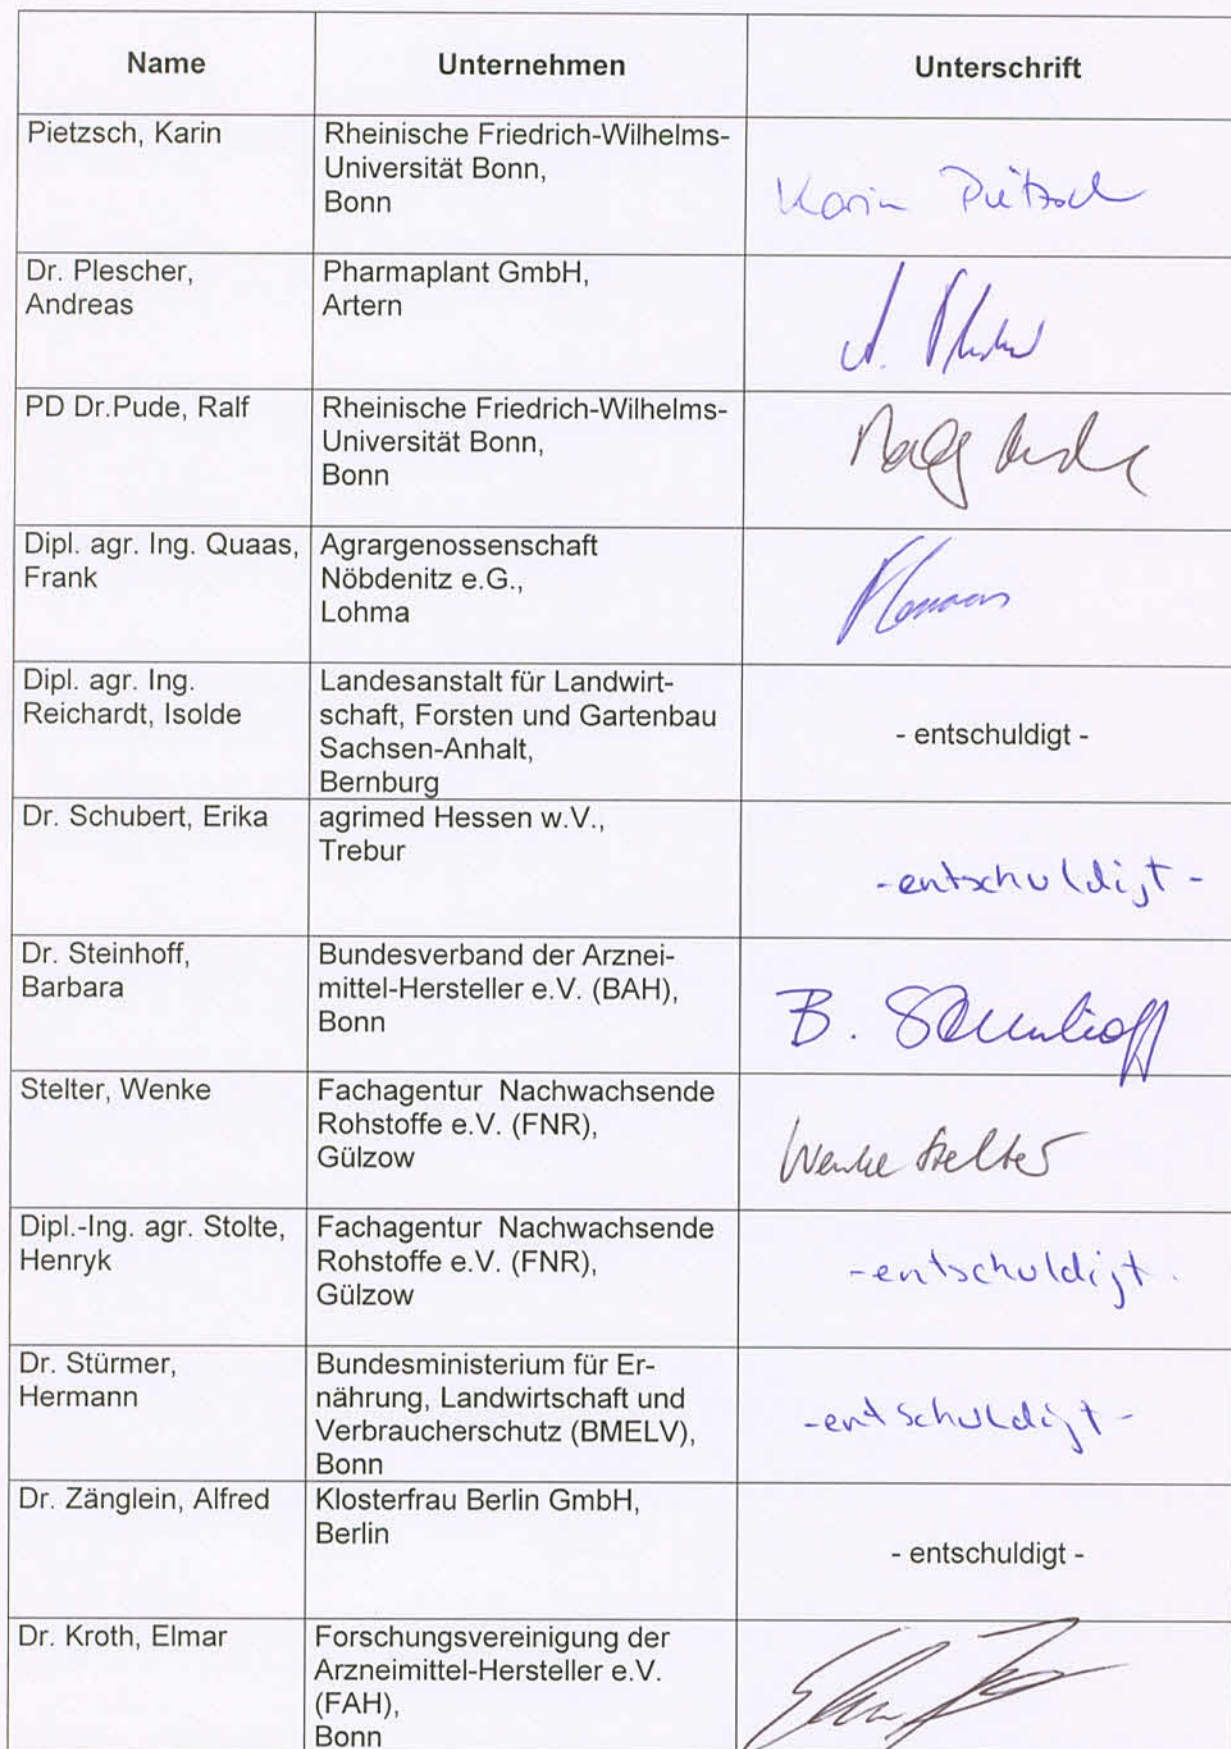 Name
Unternehmen
Unterschrift
Pietzsch, Karin
Rheinische Friedrich-Wilhelms-
Universität Bonn,
Bonn
Karin Pietzsch
Dr. Plescher,
Andreas
Pharmaplant GmbH,
Artern
A.
PD Dr.Pude, Ralf
Rheinische Friedrich-Wilhelms-
Universität Bonn,
Bonn
Ralf Pude
Dipl. agr. Ing. Quaas,
Frank
Agrargenossenschaft
Nöbdenitz e.G.,
Lohma
Dipl. agr. Ing.
Reichardt, Isolde
Landesanstalt für Landwirt-
schaft, Forsten und Gartenbau
Sachsen-Anhalt,
Bernburg
- entschuldigt -
Dr. Schubert, Erika
agrimed Hessen w.V.,
Trebur
-entschuldigt-
Dr. Steinhoff,
Barbara
Bundesverband der Arznei-
mittel-Hersteller e.V. (BAH),
Bonn
B. Steinhoff
Stelter, Wenke
Fachagentur Nachwachsende
Rohstoffe e.V. (FNR),
Gülzow
Wenke Stelter
Dipl.-Ing. agr. Stolte,
Henryk
Fachagentur Nachwachsende
Rohstoffe e.V. (FNR),
Gülzow
-entschuldigt-
Dr. Stürmer,
Hermann
Bundesministerium für Er-
nährung, Landwirtschaft und
Verbraucherschutz (BMELV),
Bonn
-entschuldigt-
Dr. Zänglein, Alfred
Klosterfrau Berlin GmbH,
Berlin
- entschuldigt -
Dr. Kroth, Elmar
Forschungsvereinigung der
Arzneimittel-Hersteller e.V.
(FAH),
Bonn